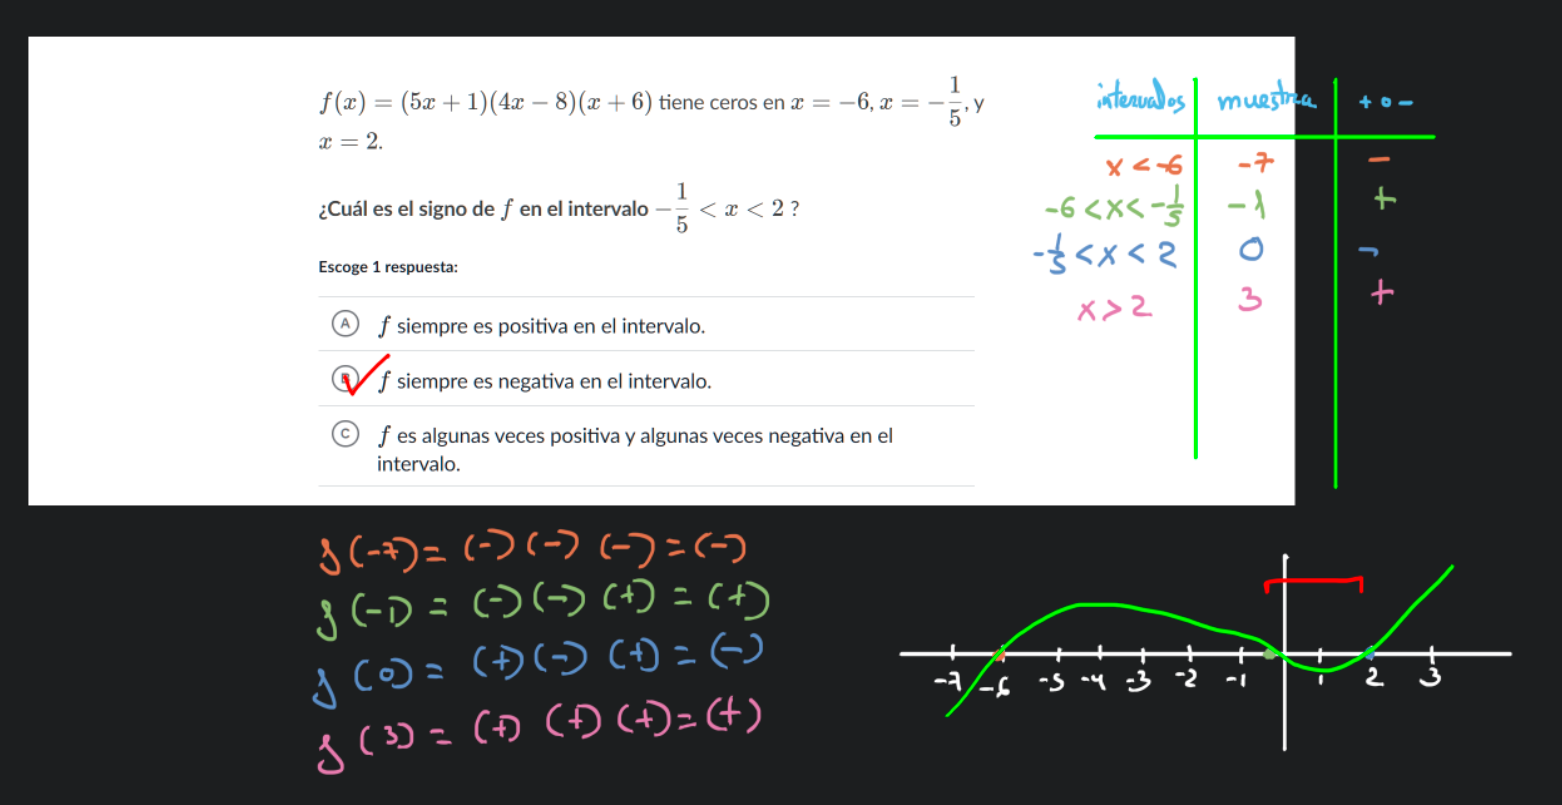 f(x) = (5x + 1)(4x − 8)(x + 6) tiene ceros en x = −6, x = −1/5, y
x = 2.
¿Cuál es el signo de f en el intervalo −1/5 < x < 2 ?
Escoge 1 respuesta:
A f siempre es positiva en el intervalo.
B f siempre es negativa en el intervalo.
C f es algunas veces positiva y algunas veces negativa en el
intervalo.
intervalos muestra + o −
x < -6 -7 −
-6 < x < -1/5 -1 +
-1/5 < x < 2 0 -
x > 2 3 +
f(-7) = (-) (-) (-) = (-)
f(-1) = (-) (-) (+) = (+)
f(0) = (+) (-) (+) = (-)
f(3) = (+) (+) (+) = (+)
-7 -6 -5 -4 -3 -2 -1 1 2 3